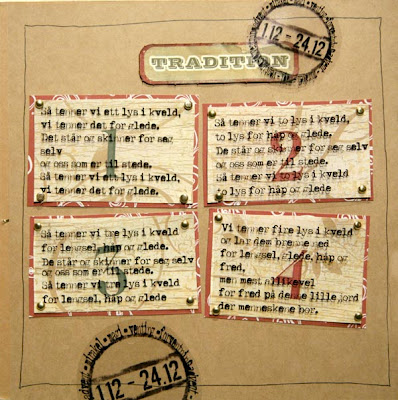 1.12 - 24.12
TRADITION
Så tenner vi ett lys i kveld,
vi tenner det for glede.
Det står og skinner for seg
selv
og oss som er til stede.
Så tenner vi ett lys i kveld,
vi tenner det for glede.
Så tenner vi to lys i kveld,
to lys for håp og glede.
De står og skinner for seg selv
og oss som er til stede.
Så tenner vi to lys i kveld
to lys for håp og glede
Så tenner vi tre lys i kveld
for lengsel, håp og glede.
De står og skinner for seg selv
og oss som er til stede.
Så tenner vi tre lys i kveld
for lengsel, håp og glede
3
Vi tenner fire lys i kveld
og lar dem brenne ned
for lengsel, glede, håp og
fred,
men mest allikevel
for fred på denne lille jord
der menneskene bor.
1.12 - 24.12